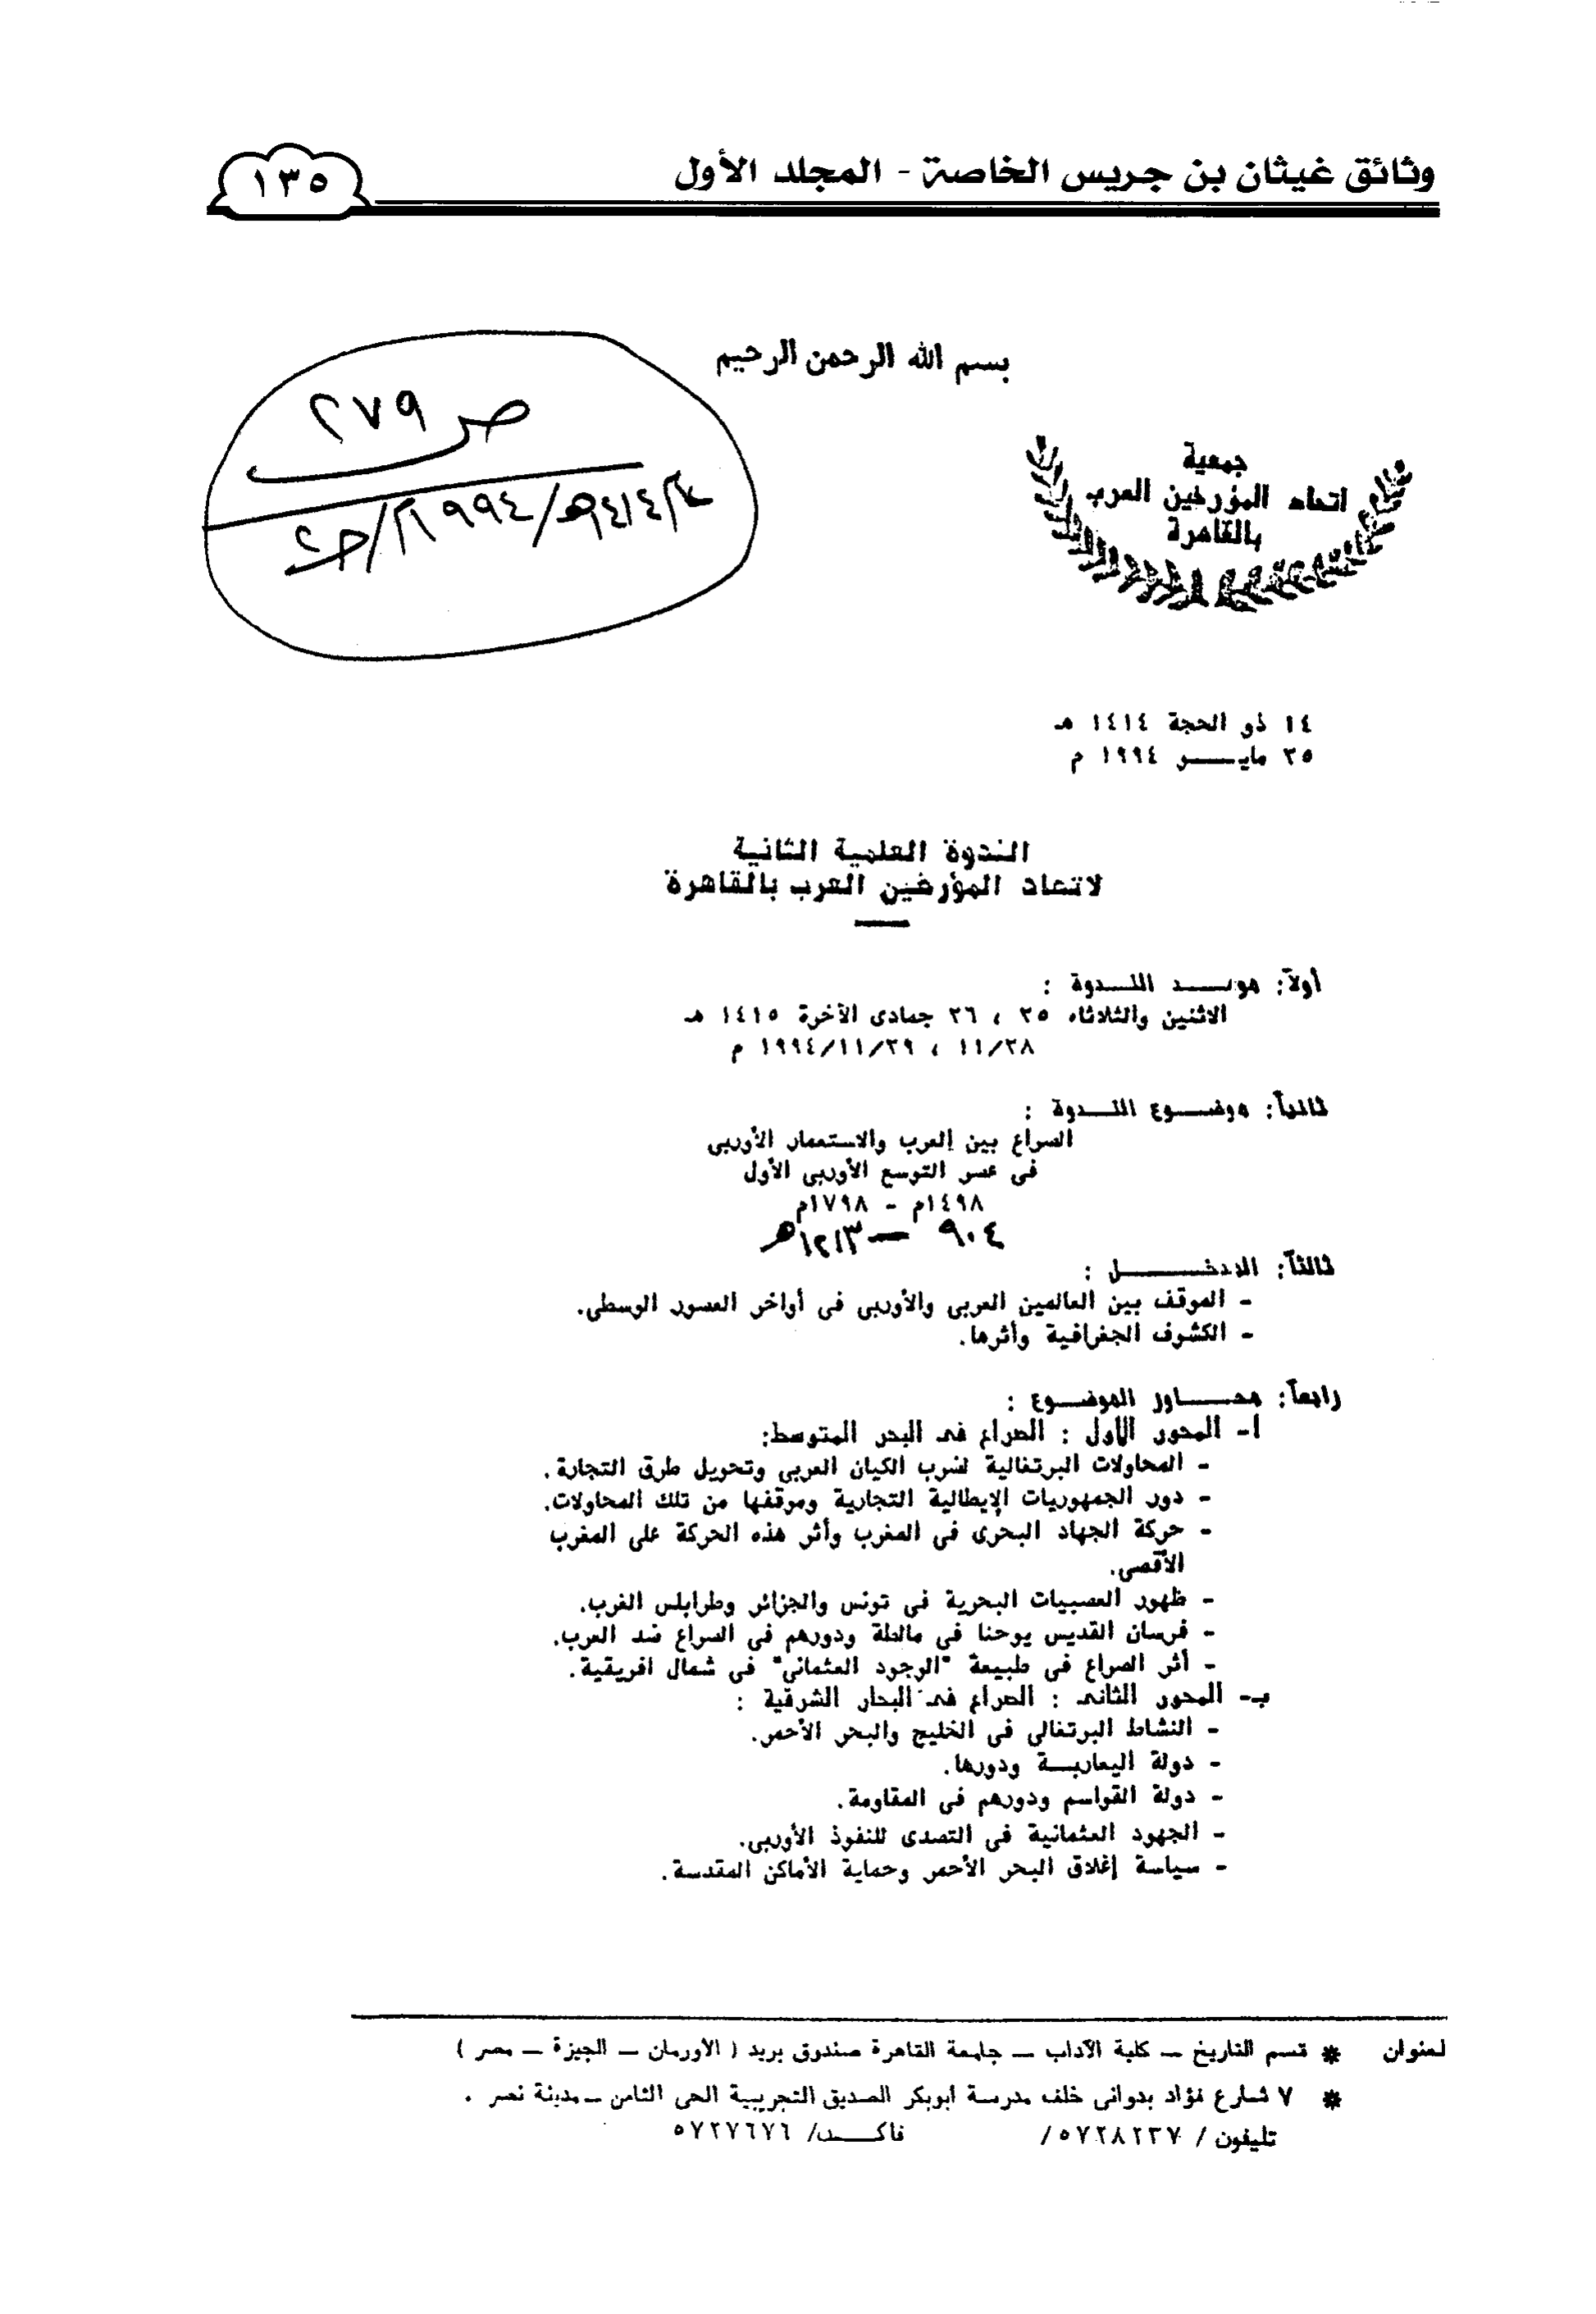 وثائق غيثان بن جريس الخاصة - المجلد الأول
١٣٥
بسم الله الرحمن الرحيم
ص ٢٧٩
١٤١٤هـ/١٩٩٤م/
جمعية
اتحاد المؤرخين العرب
بالقاهرة
١٤ ذو الحجة ١٤١٤ هـ
٢٥ مايـــو ١٩٩٤ م
الندوة العلمية الثانية
لاتحاد المؤرخين العرب بالقاهرة
أولاً: موعـــد النـــدوة :
الاثنين والثلاثاء ٢٥ ، ٢٦ جمادى الآخرة ١٤١٥ هـ
١١/٢٨ ، ١٩٩٤/١١/٢٩ م
ثانياً: موضـــوع النـــدوة :
الصراع بين العرب والاستعمار الأوربى
فى عصر التوسع الأوربى الأول
١٤٩٨م - ١٧٩٨م
٩٠٤ – ١٢١٣هـ
ثالثاً: المدخـــــل :
- الموقف بين العالمين العربى والأوربى فى أواخر العصور الوسطى.
- الكشوف الجغرافية وأثرها.
رابعاً: محـــاور الموضـــوع :
أ- المحور الأول : الصراع فى البحر المتوسط:
- المحاولات البرتغالية لضرب الكيان العربى وتحويل طرق التجارة.
- دور الجمهوريات الإيطالية التجارية وموقفها من تلك المحاولات.
- حركة الجهاد البحرى فى المغرب وأثر هذه الحركة على المغرب
الأقصى.
- ظهور العصبيات البحرية فى تونس والجزائر وطرابلس الغرب.
- فرسان القديس يوحنا فى مالطة ودورهم فى الصراع ضد العرب.
- أثر الصراع فى طبيعة "الوجود العثمانى" فى شمال افريقية.
ب- المحور الثانى : الصراع فى البحار الشرقية :
- النشاط البرتغالى فى الخليج والبحر الأحمر.
- دولة اليعاربـــة ودورها.
- دولة القواسم ودورهم فى المقاومة.
- الجهود العثمانية فى التصدى للنفوذ الأوربى.
- سياسة إغلاق البحر الأحمر وحماية الأماكن المقدسة.
لعنوان * قسم التاريخ – كلية الآداب – جامعة القاهرة صندوق بريد ( الأورمان – الجيزة – مصر )
* ٧ شارع فؤاد بدوانى خلف مدرسة أبوبكر الصديق التجريبية الحى الثامن – مدينة نصر .
تليفون / ٥٧٢٨٢٣٧/ فاكـــس/ ٥٧٢٧٦٧٦